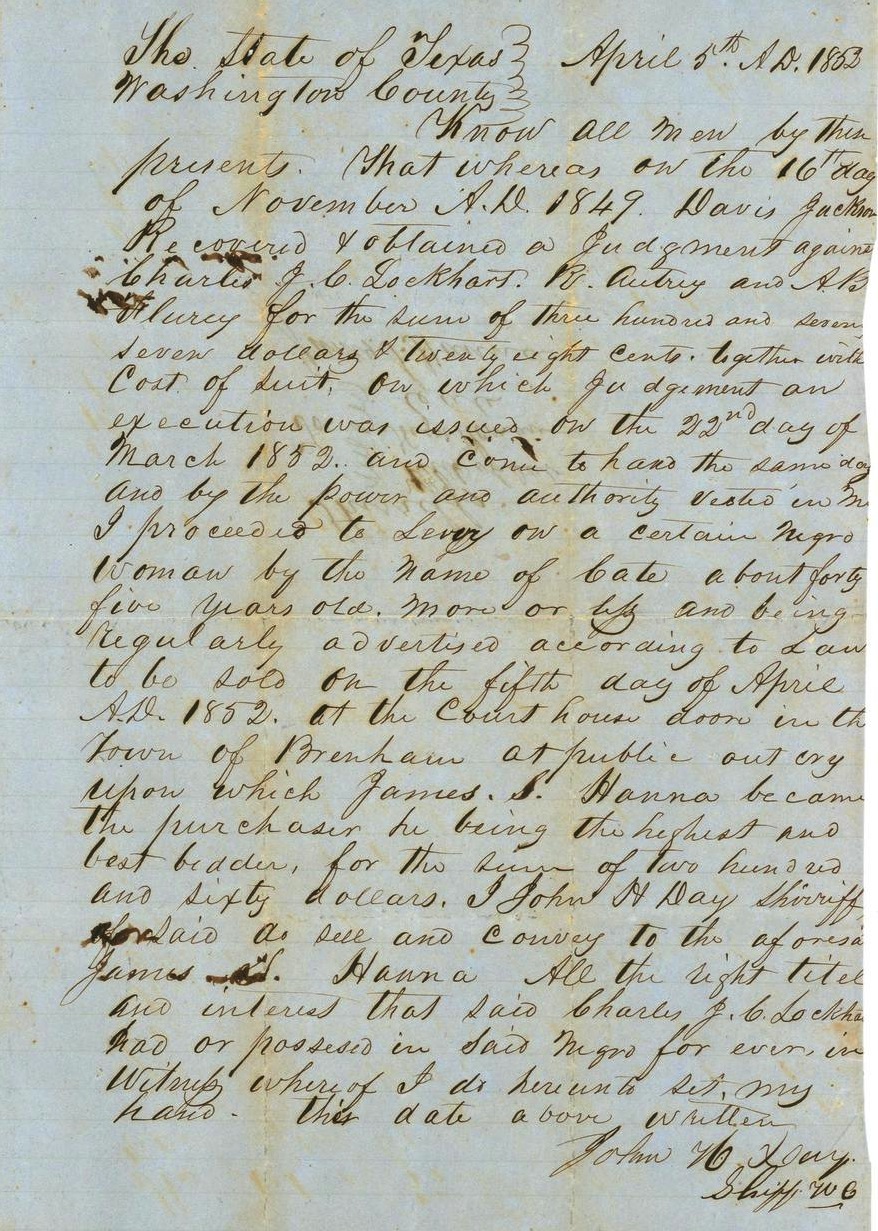 The State of Texas } April 5th. A.D. 1852
Washington County }
Know all men by these
presents. That whereas on the 16th day
of November A.D. 1849. Davis Jackson
Recovered & obtained a Judgment agains
Charles J. C. Lockhart. R. Autrey and A.B
for the sum of three hundred and seven
seven dollars & twenty eight cents. together with
Cost of suit, on which Judgement an
execution was issued on the 22nd day of
March 1852. and come to hand the same day
and by the power and authority vested in me
I proceeded to Levy on a certain negro
woman by the name of Cate about forty
five years old. more or less and being
regularly advertised according to Law
to be sold on the fifth day of April
A.D. 1852. at the Court house door in th
Town of Brenham at public out cry
upon which James. S. Hanna became
the purchaser he being the highest and
best bidder, for the sum of two hundred
and sixty dollars. I John H Day Sheriff
aforsaid do sell and convey to the aforesa
James S. Hanna All the right titel
and interest that said Charles J. C. Lockha
had or possesed in said negro for ever, in
Witness whereof I do hereunto set, my
hand. this date above written
John H Day.
Shiff W C